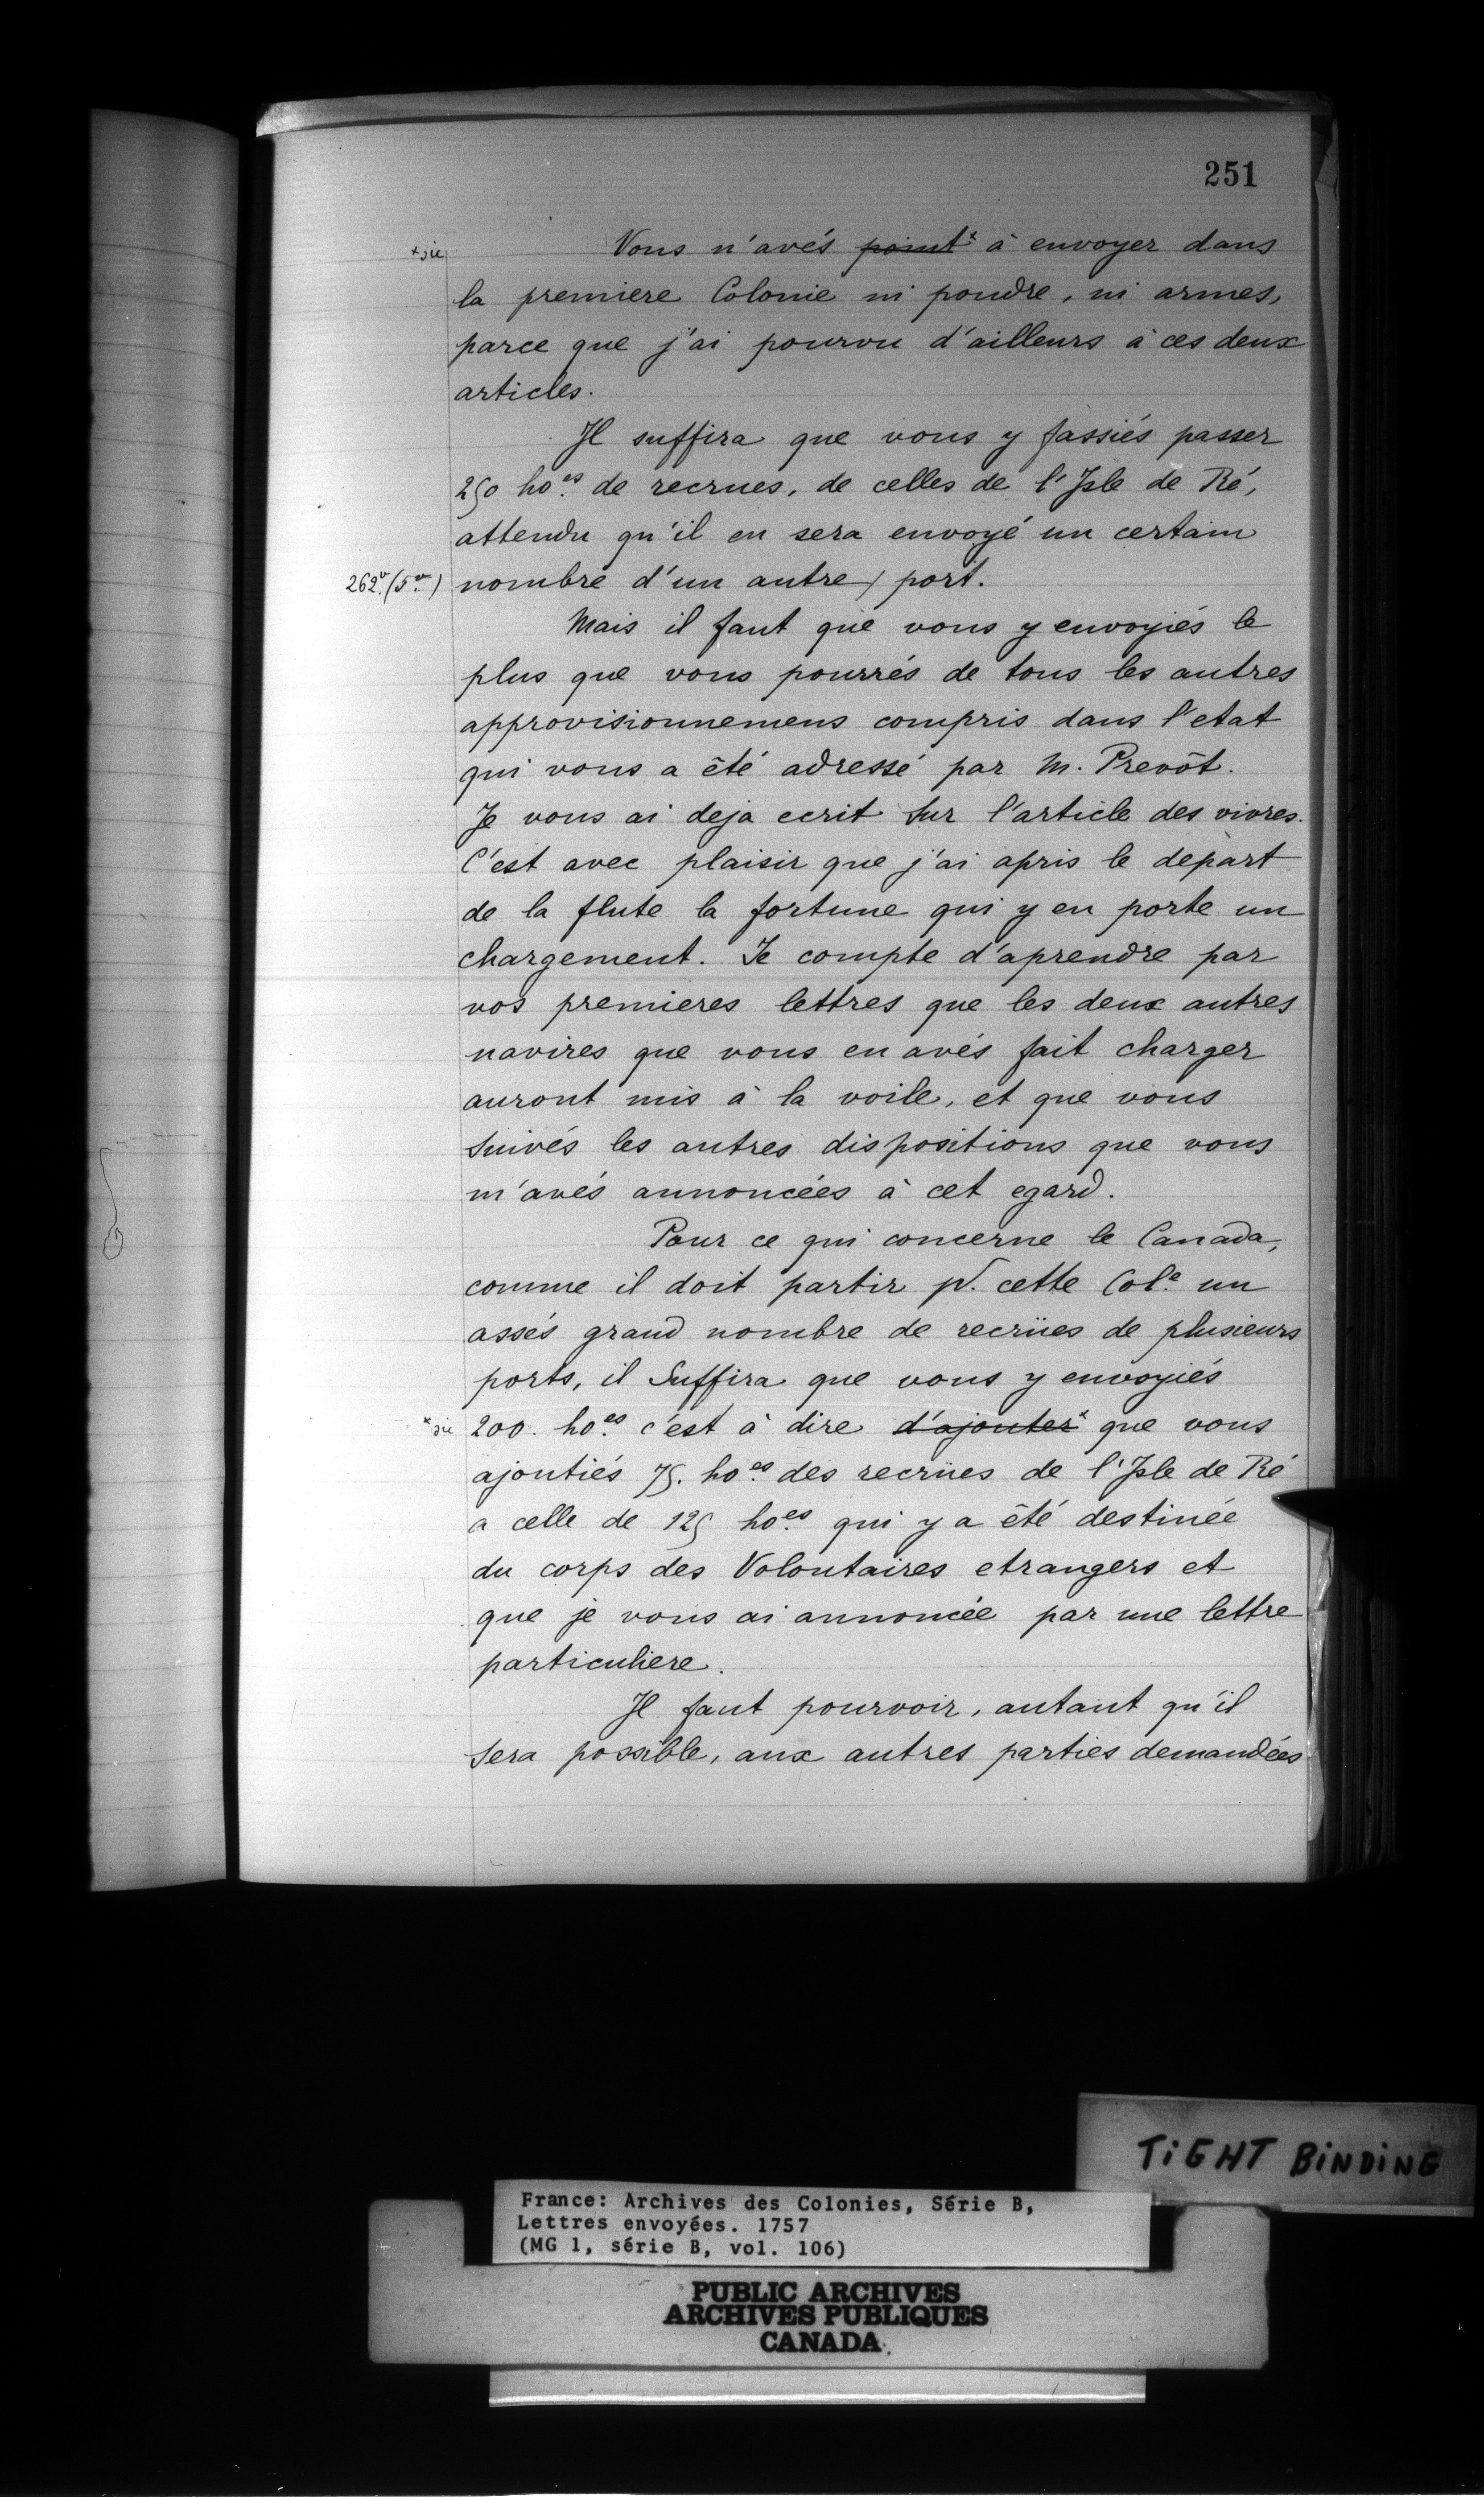 251
*sic Vous n'avés point* à envoyer dans
la premiere Colonie ni poudre, ni armes,
parce que j'ai pourvu d'ailleurs à ces deux
articles.
Il suffira que vous y fassiés passer
250 hoes. de recrues, de celles de l'Isle de Ré,
attendu qu'il en sera envoyé un certain
262v. (5vo.) nombre d'un autre / port.
Mais il faut que vous y envoyiés le
plus que vous pourrés de tous les autres
approvisionnemens compris dans l'etat
qui vous a été adressé par M. Prevôt.
Je vous ai deja ecrit sur l'article des vivres.
C'est avec plaisir que j'ai apris le depart
de la flute la fortune qui y en porte un
chargement. Je compte d'aprendre par
vos premieres lettres que les deux autres
navires que vous en avés fait charger
auront mis à la voile, et que vous
suivés les autres dispositions que vous
m'avés annoncées à cet egard.
Pour ce qui concerne le Canada,
comme il doit partir pr. cette Cole. un
assés grand nombre de recrües de plusieurs
ports, il suffira que vous y envoyiés
*sic 200. hoes. c'est à dire d'ajouter* que vous
ajoutiés 75. hoes. des recrües de l'Isle de Ré
a celle de 125 hoes. qui y a été destinée
du corps des Volontaires etrangers et
que je vous ai annoncée par une lettre
particuliere.
Il faut pourvoir, autant qu'il
sera possible, aux autres parties demandées
TIGHT BINDING
France: Archives des Colonies, Série B,
Lettres envoyées. 1757
(MG 1, série B, vol. 106)
PUBLIC ARCHIVES
ARCHIVES PUBLIQUES
CANADA